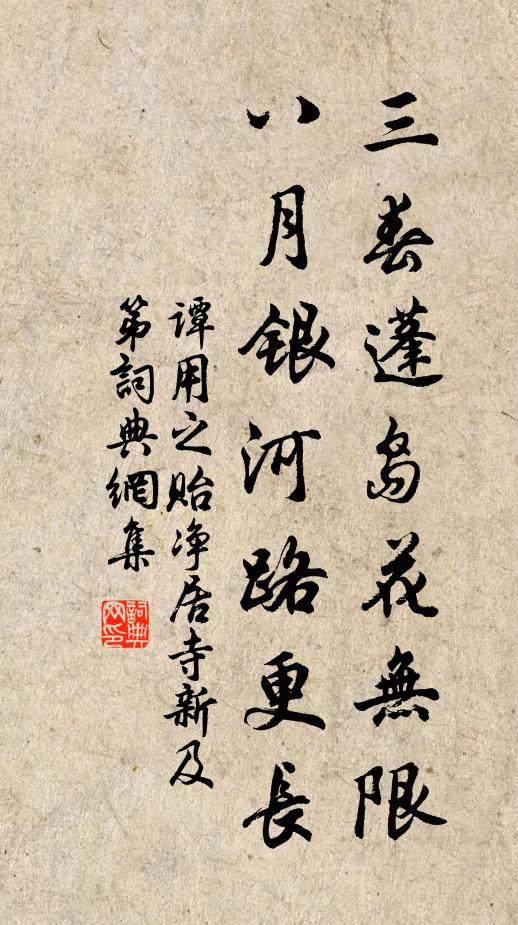 三春蓬島花無限
八月銀河路更長
譚用之貽淨居寺新及
第詞典網集
詞典網印